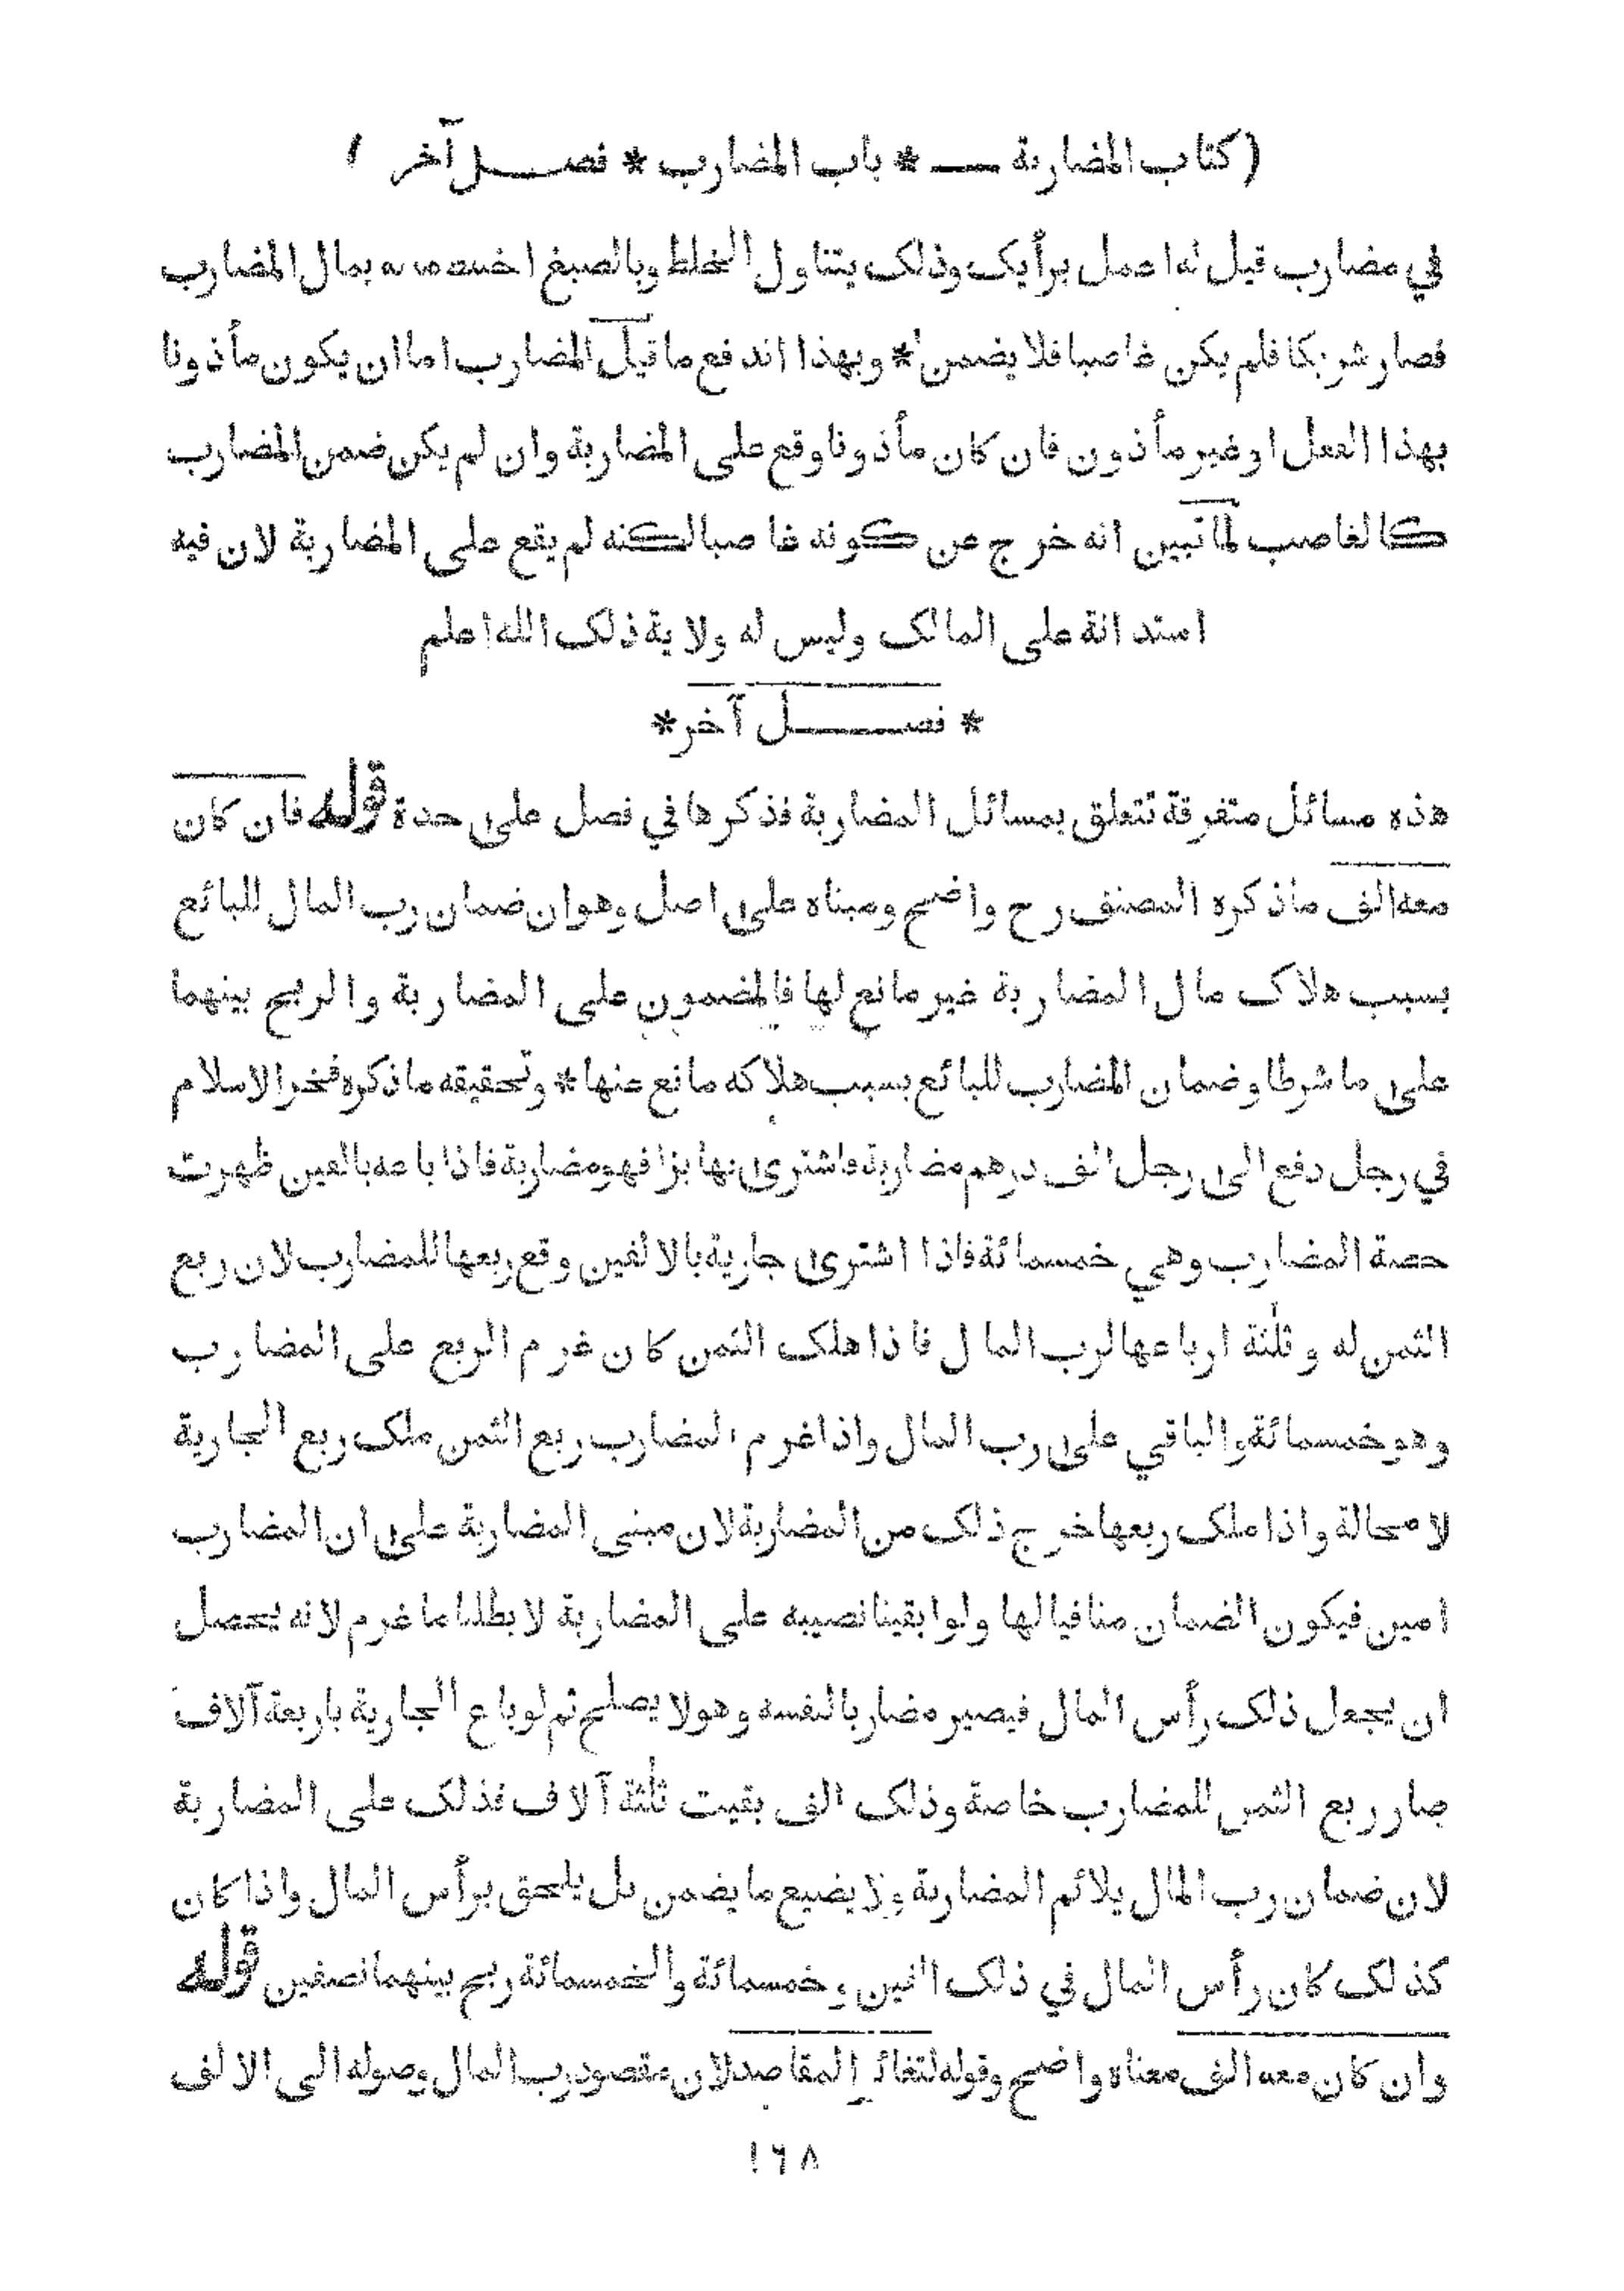 ( كتاب المضاربة — * باب المضارب * فصل آخر )
في مضارب قيل له اعمل برأيك وذلك يتناول الخلط وبالصبغ اختلط ماله بمال المضارب
فصار شريكا فلم يكن غاصبا فلا يضمن * وبهذا اندفع ما قيل المضارب اما ان يكون مأذونا
بهذا الفعل او غير مأذون فان كان مأذونا وقع على المضاربة وان لم يكن ضمن المضارب
كالغاصب لما تبين انه خرج عن كونه غاصبا لكنه لم يقع على المضاربة لان فيه
استدانة على المالك وليس له ولاية ذلك الله اعلم
* فصل آخر *
هذه مسائل متفرقة تتعلق بمسائل المضاربة فذكرها في فصل على حدة قوله فان كان
معه الف ما ذكره المصنف رح واضح ومبناه على اصل وهو ان ضمان رب المال للبائع
بسبب هلاك مال المضاربة غير مانع لها فالمضمون على المضاربة والربح بينهما
على ما شرطا وضمان المضارب للبائع بسبب هلاكه مانع عنها * وتحقيقه ما ذكره فخر الاسلام
في رجل دفع الى رجل الف درهم مضاربة فاشترى بها بزا فهو مضاربة فاذا باعه بالفين ظهرت
حصة المضارب وهي خمسمائة فاذا اشترى جارية بالالفين وقع ربعها للمضارب لان ربع
الثمن له وثلثة ارباعها لرب المال فاذا هلك الثمن كان غرم الربع على المضارب
وهو خمسمائة والباقي على رب المال واذا غرم المضارب ربع الثمن ملك ربع الجارية
لا محالة واذا ملك ربعها خرج ذلك من المضاربة لان مبنى المضاربة على ان المضارب
امين فيكون الضمان منافيا لها ولو ابقينا نصيبه على المضاربة لابطلنا ما غرم لانه يحصل
ان يجعل ذلك رأس المال فيصير مضاربا لنفسه وهو لا يصلح ثم لو باع الجارية باربعة آلاف
صار ربع الثمن للمضارب خاصة وذلك الف بقيت ثلثة آلاف فذلك على المضاربة
لان ضمان رب المال يلائم المضاربة ولا يضيع ما يضمن بل يلحق برأس المال واذا كان
كذلك كان رأس المال في ذلك الفين وخمسمائة والخمسمائة ربح بينهما نصفين قوله
وان كان معه الف معناه واضح وقوله لتغائر المقاصد لان مقصود رب المال وصوله الى الالف
١٦٨